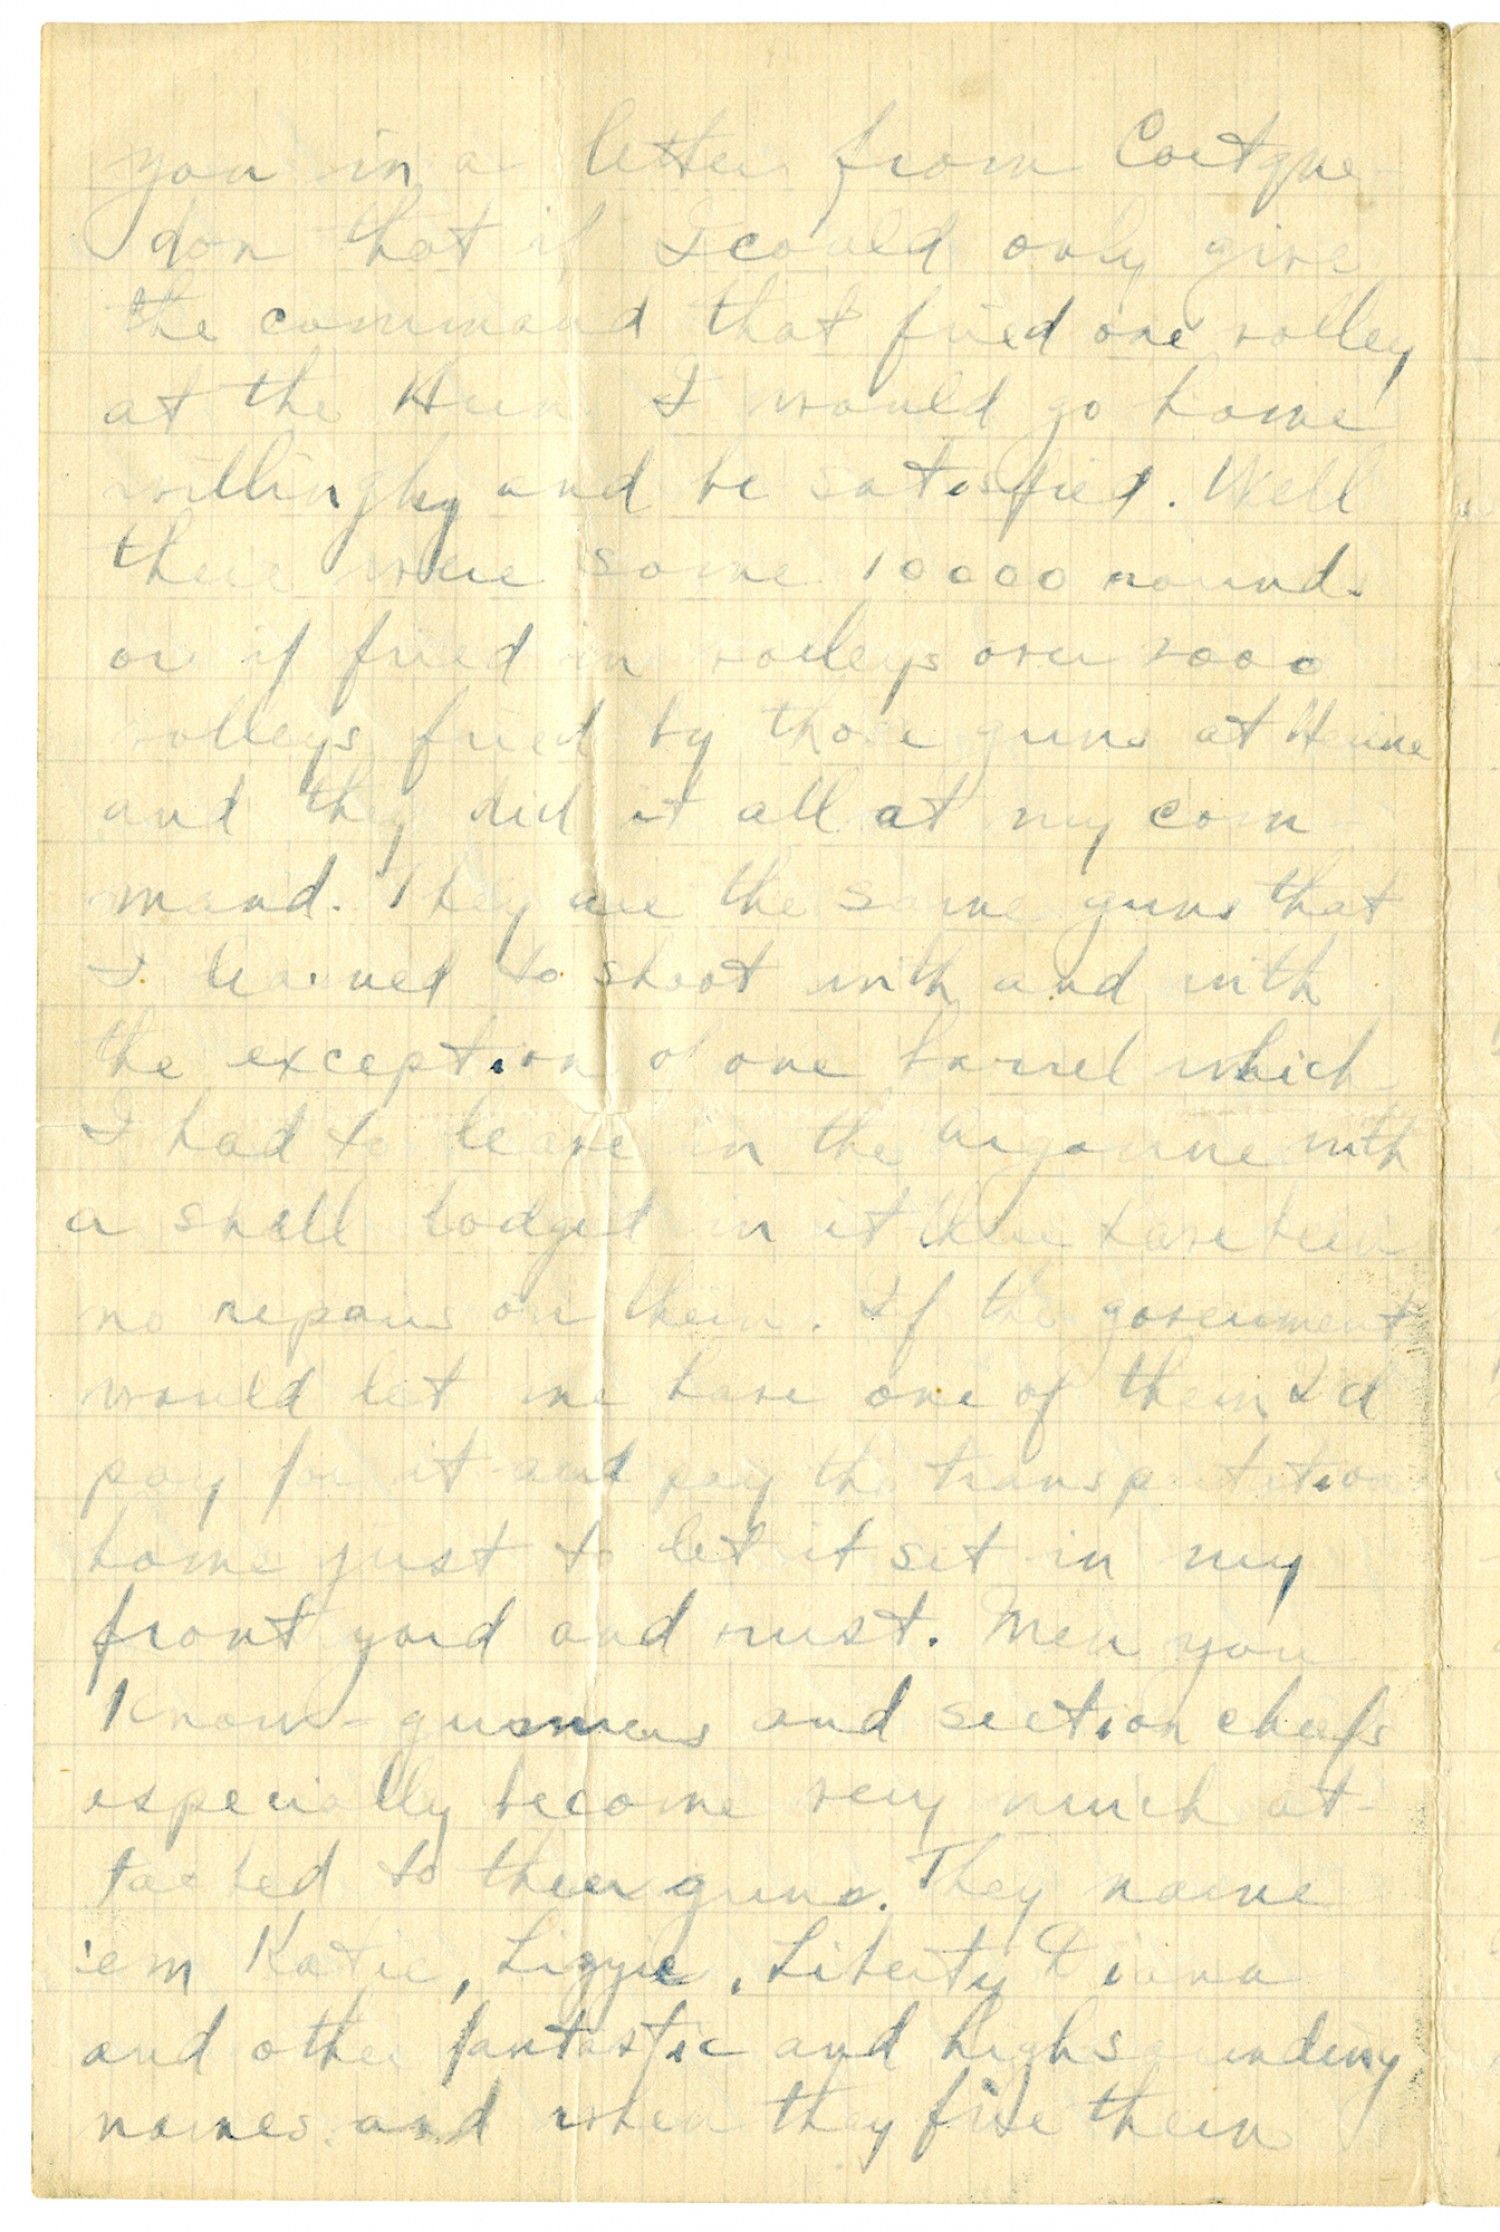 you in a letter from Coetque-
don that if I could only give
the command that fired one volley
at the Hun I would go home
willingly and be satisfied. Well
there were some 10000 rounds
or if fired in volleys over 2000
volleys fired by those guns at Heinie
and they did it all at my com-
mand. They are the same guns that
I learned to shoot with and with
the exception of one barrel which
I had to leave in the Argonne with
a shell lodged in it they have been
no repairs on them. If the government
would let me have one of them I'd
pay for it and pay the transportation
home just to let it set in my
front yard and rust. Men you
know - gunners and section chiefs
especially become very much at-
tached to their guns. They name
'em Katie, Lizzie, Liberty Diana
and other fantastic and high sounding
names and when they fire them